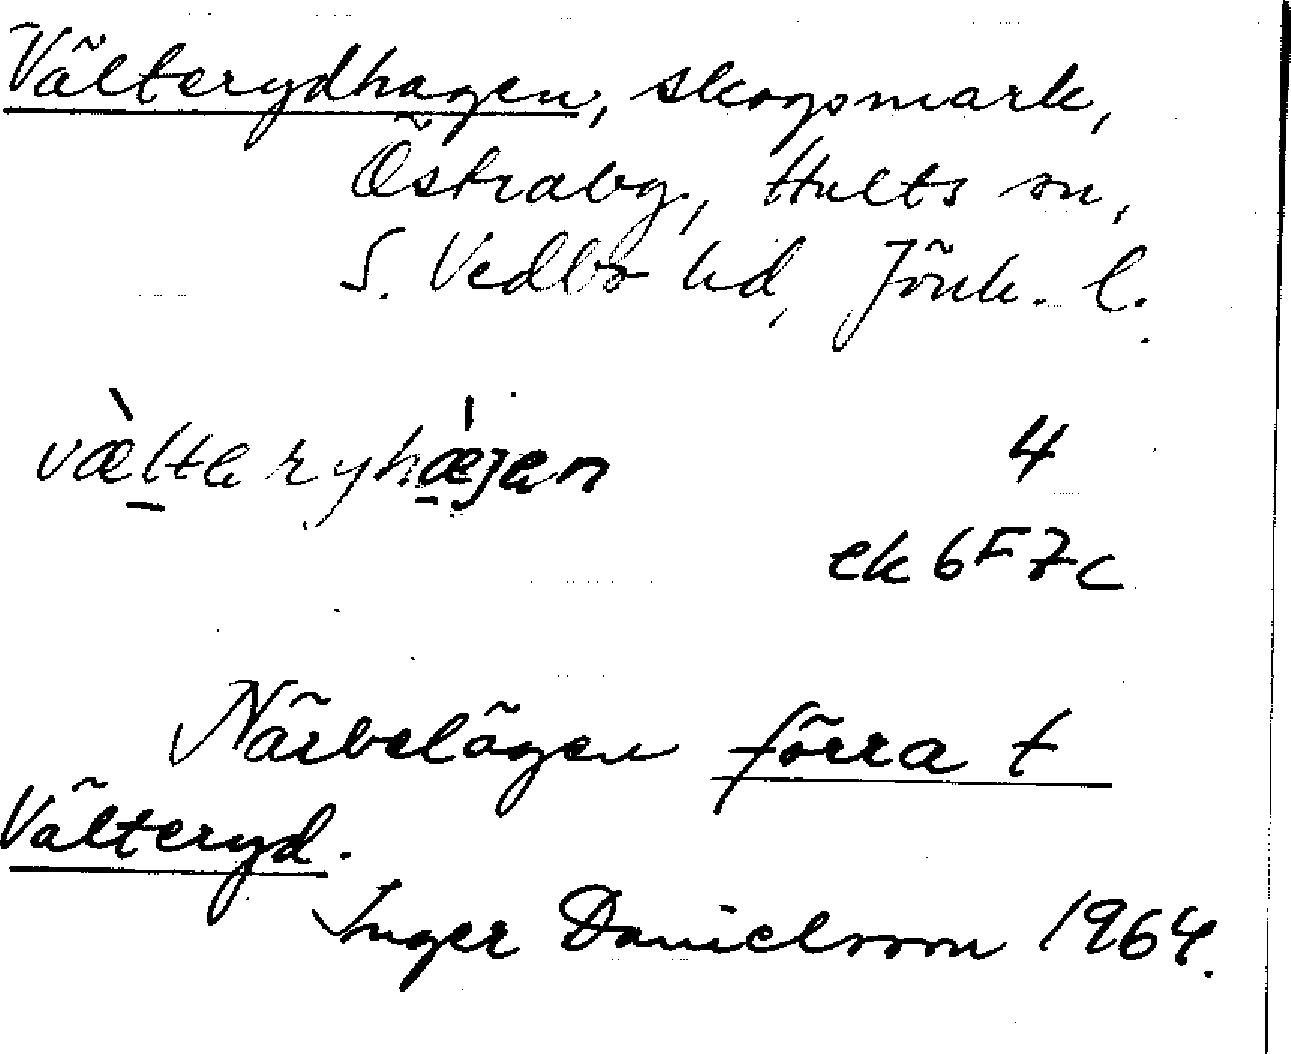 Välterydhagen, skogsmark,
Östraby, Hults sn,
S. Vedbo hd, Jönk. l.
væ̀ltaryhǽjen 4
ek 6F7c
Närbelägen förra t
Välteryd.
Inger Danielsson 1964.